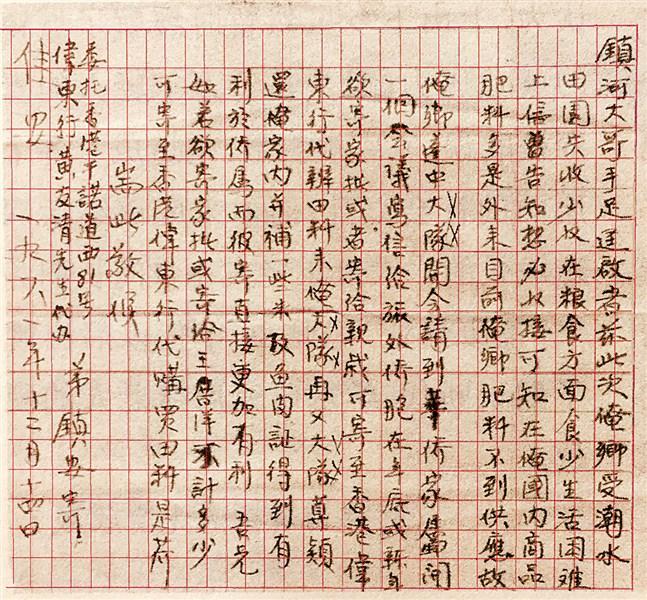 鎮河大哥手足運啟者茲此次俺鄉受潮水
田園失收少收在粮食方面食少生活困难
上信曾告知想必收接可知在俺國内商品
肥料多是外来目前俺鄉肥料不到供應故
俺鄉蓮中大隊開会請到華侨家屬開
一個会議寫信给旅外侨胞在年底或新年
欲寄家批或者寄给親戚可寄至香港偉
東行代辦田料来俺大隊再又大隊尊
還俺家内并補一些米及魚肉証得到有
利於侨属而彼寄直接更加有利 吾兄
如若欲寄家批或寄给三唇洋不計多少
可寄至香港偉東行代購買田料是荷
耑此敬候
佳男
弟鎮安寄
委托香港干諾道西91号
偉東行黄友清先生代办
一九六一年十二月十四日